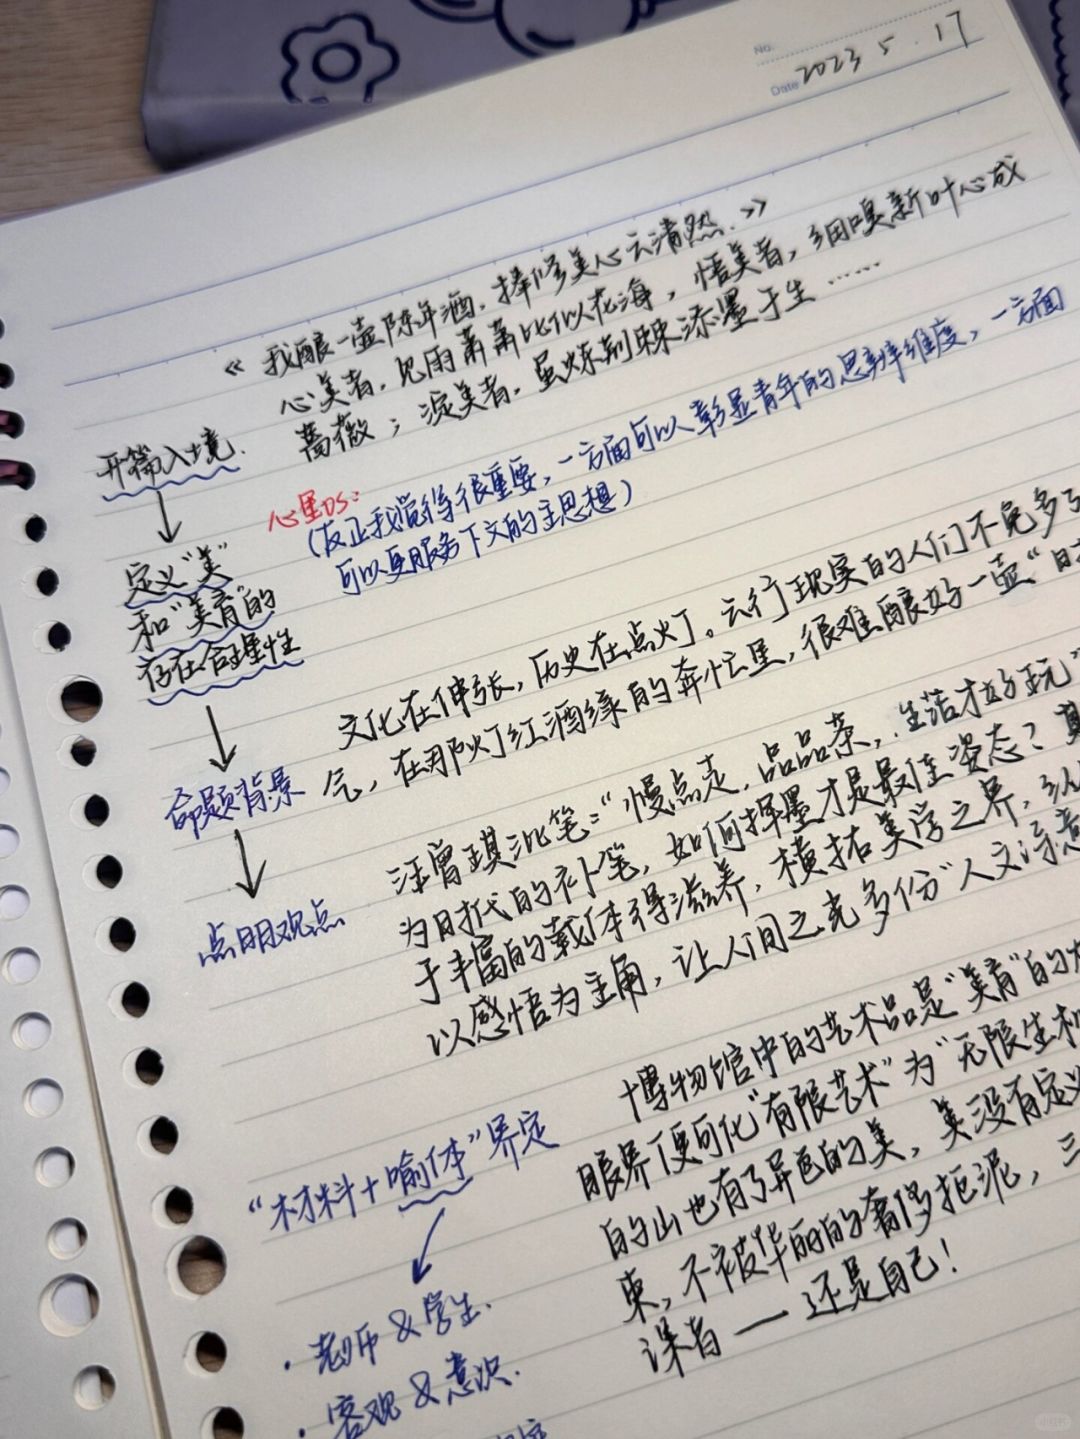 No.
Date 2023 5. 17
《我酿一壶陈年酒,捧修美心云清然.》
心美者,见雨萧萧比似花海,悟美者,细嗅新叶心成
蔷薇;淀美者,虽烁荆棘添墨于生……
开篇入境.
心里DS:
(反正我觉得很重要,一方面可以彰显青年的思辨维度,一方面
可以更服务下文的主思想)
定义"美"
和"美育"的
存在合理性
文化在伸张,历史在点灯。云行现实的人们不免多了
气,在那灯红酒绿的奔忙里,很难酿好一壶"时
命题背景
汪曾琪沘笔:"慢点走,品品茶,生活才好玩"
为时代的补笔,如何挥墨才是最佳姿态?真
于丰富的载体得滋养,横拓美学之界,纵
以感悟为主角,让人间之克多份"人文诗意
点明观点
博物馆中的艺术品是"美育"的
眼界便可化"有限艺术"为"无限生机
的山也有了异色的美,美没有定义
束,不被华丽的奢侈扼泥,三
深者——还是自己!
"材料+喻体"界定
·老师&学生.
·客观&意识.